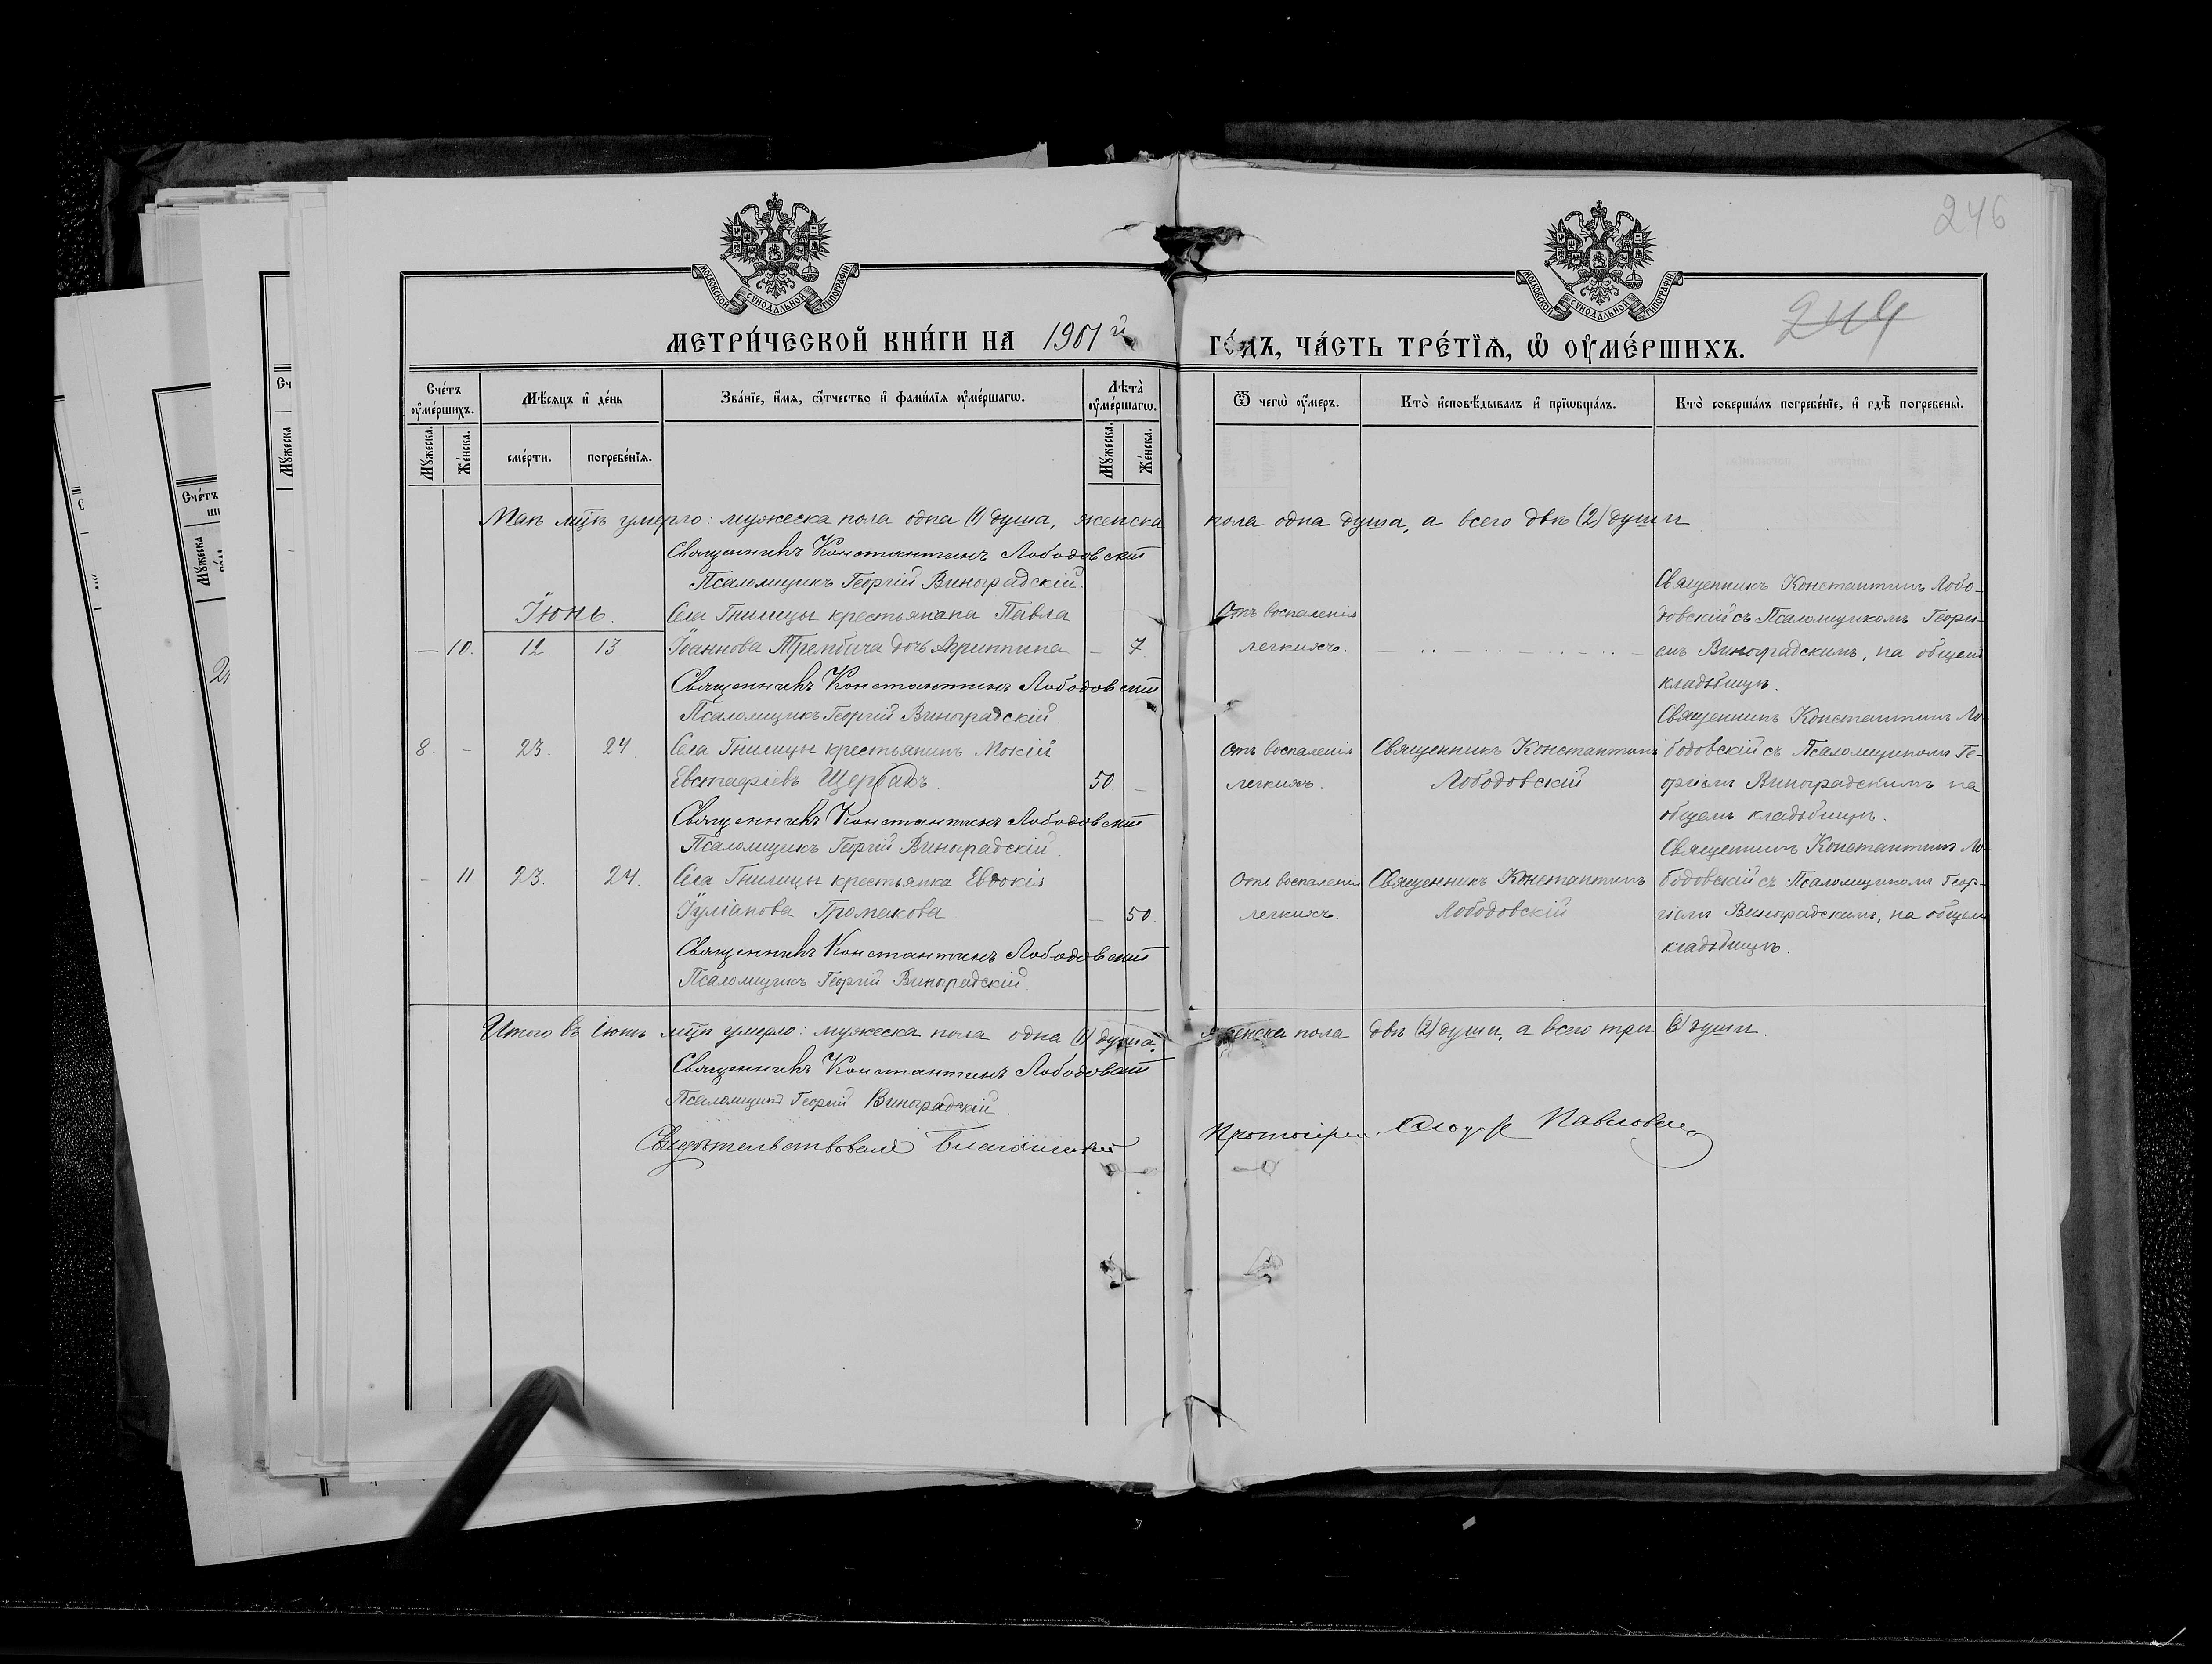 246
МОСКОВСКОЙ СУНОДАЛЬНОЙ ТИПОГРАФІИ
МОСКОВСКОЙ СУНОДАЛЬНОЙ ТИПОГРАФІИ
244
МЕТРИ́ЧЕСКОЙ КНИ́ГИ НА 1901й ГО́ДЪ, ЧА́СТЬ ТРЕ́ТЇѦ, Ѡ҆ ОУ҆МЕ́РШИХЪ.
Сче́тъ оу҆ме́ршихъ.
Мꙋ́жеска.
Же́нска.
Мѣ́сѧцъ и҆ де́нь
сме́рти.
погребе́нїѧ.
Зва́нїе, и҆́мѧ, ѻ҆́тчество и҆ фами́лїѧ оу҆ме́ршагѡ.
Лѣ́та оу҆ме́ршагѡ.
Мꙋ́жеска.
Же́нска.
Ѿ чегѡ̀ оу҆́меръ.
Кто̀ и҆сповѣ́дывалъ и҆ прїѡбща́лъ.
Кто̀ соверша́лъ погребе́нїе, и҆ гдѣ̀ погребены̀.
Маѣ мцѣ умерло: мужеска пола одна (1) душа, женска пола одна душа, а всего двѣ (2) души
Священникъ Константинъ Лободовскій
Псаломщикъ Георгій Виноградскій.
Іюнь.
— 10. 12. 13 Села Гнилицы крестьянина Павла
Іоаннова Трембача дочь Агриппина — 7.
Отъ воспаленія
легкихъ.
Священникъ Константинъ Лобо-
довскій съ Псаломщикомъ Георгі-
емъ Виноградскимъ, на общемъ
кладбищѣ.
Священникъ Константинъ Лободовскій
Псаломщикъ Георгій Виноградскій.
8. — 23. 24 Села Гнилицы крестьянинъ Мокій
Евстафіевъ Щербакъ. 50. —
Отъ воспаленія
легкихъ.
Священникъ Константинъ
Лободовскій
Священникъ Константинъ Ло-
бодовскій съ Псаломщикомъ Ге-
оргіемъ Виноградскимъ на
общемъ кладбищѣ.
Священникъ Константинъ Лободовскій
Псаломщикъ Георгій Виноградскій.
— 11 23. 24. Села Гнилицы крестьянка Евдокія
Іуліанова Громакова — 50.
Отъ воспаленія
легкихъ.
Священникъ Константинъ
Лободовскій
Священникъ Константинъ Ло-
бодовскій съ Псаломщикомъ Геор-
гіемъ Виноградскимъ, на общемъ
кладбищѣ.
Священникъ Константинъ Лободовскій
Псаломщикъ Георгій Виноградскій.
Итого въ Іюнѣ мцѣ умерло: мужеска пола одна (1) душа, женска пола двѣ (2) души, а всего три (3) души.
Священникъ Константинъ Лободовскій
Псаломщикъ Георгій Виноградскій.
Свидѣтельствовалъ Благочинный Протоіерей Павловъ